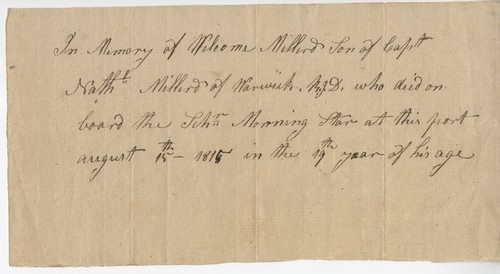 In Memory of Welcome Millerd Son of Capt
Nathl. Millerd of Warwick who died on
board the Schr. Morning Star at this port
august 15th – 1815 in the 19th year of his age